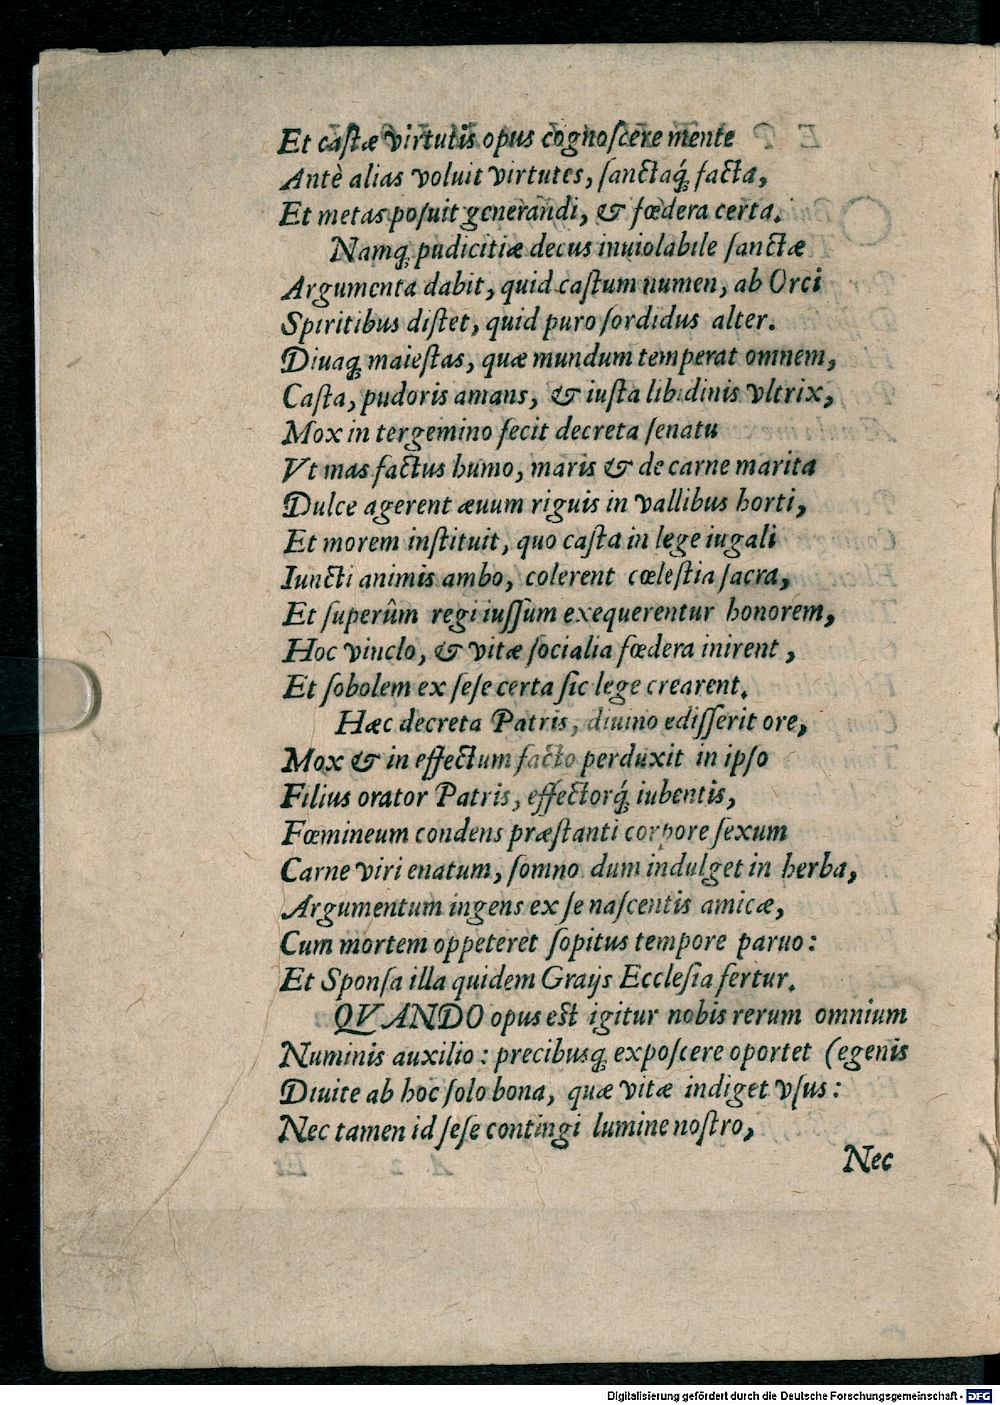 Et caſtæ virtutis opus cognoſcere mente
Antè alias voluit virtutes, ſanctaq́; facta,
Et metas poſuit generandi, & fœdera certa.
Namq; pudicitiæ decus inuiolabile ſanctæ
Argumenta dabit, quid caſtum numen, ab Orci
Spiritibus diſtet, quid puro ſordidus alter.
Diuaq; maieſtas, quæ mundum temperat omnem,
Caſta, pudoris amans, & iuſta libidinis vltrix,
Mox in tergemino fecit decreta ſenatu
Vt mas factus humo, maris & de carne marita
Dulce agerent æuum riguis in vallibus horti,
Et morem inſtituit, quo caſta in lege iugali
Iuncti animis ambo, colerent cœleſtia ſacra,
Et ſuperûm regi iuſſum exequerentur honorem,
Hoc vinclo, & vitæ ſocialia fœdera inirent,
Et ſobolem ex ſeſe certa ſic lege crearent.
Hæc decreta Patris, diuino ediſſerit ore,
Mox & in effectum facto perduxit in ipſo
Filius orator Patris, effectorq́; iubentis,
Fœmineum condens præſtanti corpore ſexum
Carne viri enatum, ſomno dum indulget in herba,
Argumentum ingens ex ſe naſcentis amicæ,
Cum mortem oppeteret ſopitus tempore paruo:
Et Sponſa illa quidem Graijs Eccleſia fertur.
QVANDO opus est igitur nobis rerum omnium
Numinis auxilio: precibusq; expoſcere oportet (egenis
Diuite ab hoc ſolo bona, quæ vitæ indiget vſus:
Nec tamen id ſeſe contingi lumine noſtro,
Nec
Digitalisierung gefördert durch die Deutsche Forschungsgemeinschaft - DFG